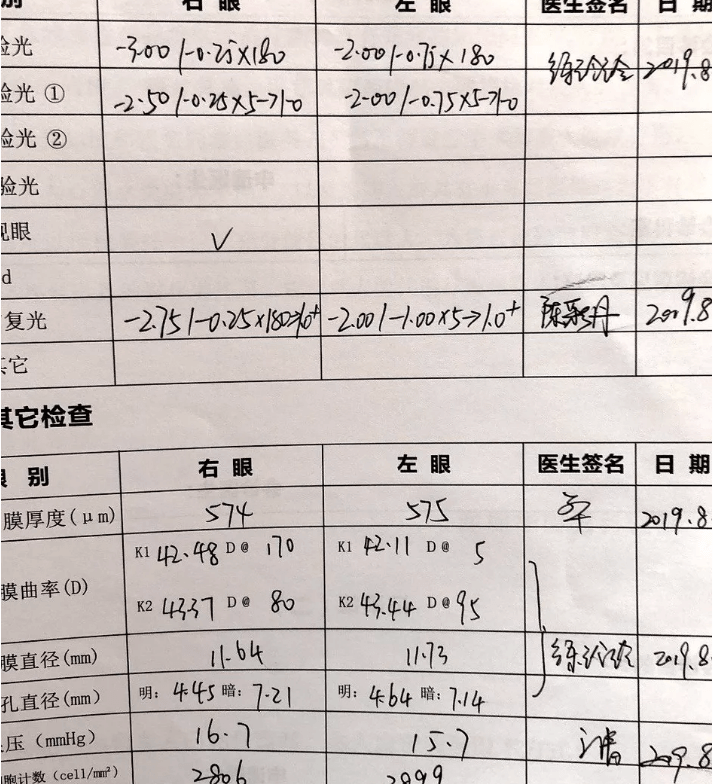 别 右 眼 左 眼 医生签名 日 期
验光 -3.00/-0.25×180 -2.00/-0.75×180 2019.8
验光 ① -2.50/-0.25×5→1.0 -2.00/-0.75×5→1.0
验光 ②
验光
视眼 √
d
复光 -2.75/-0.25×180→1.0⁺ -2.00/-1.00×5→1.0⁺ 陈彩丹 2019.8
其它
其它检查
眼 别 右 眼 左 眼 医生签名 日 期
膜厚度(μm) 574 575 2019.8
膜曲率(D) K1 42.48 D@ 170 K1 42.11 D@ 5
K2 43.37 D@ 80 K2 43.44 D@ 95
膜直径(mm) 11.64 11.73 2019.8
孔直径(mm) 明: 4.45 暗: 7.21 明: 4.64 暗: 7.14
压(mmHg) 16.7 15.7 2019.8
胞计数(cell/mm²) 2806 2999